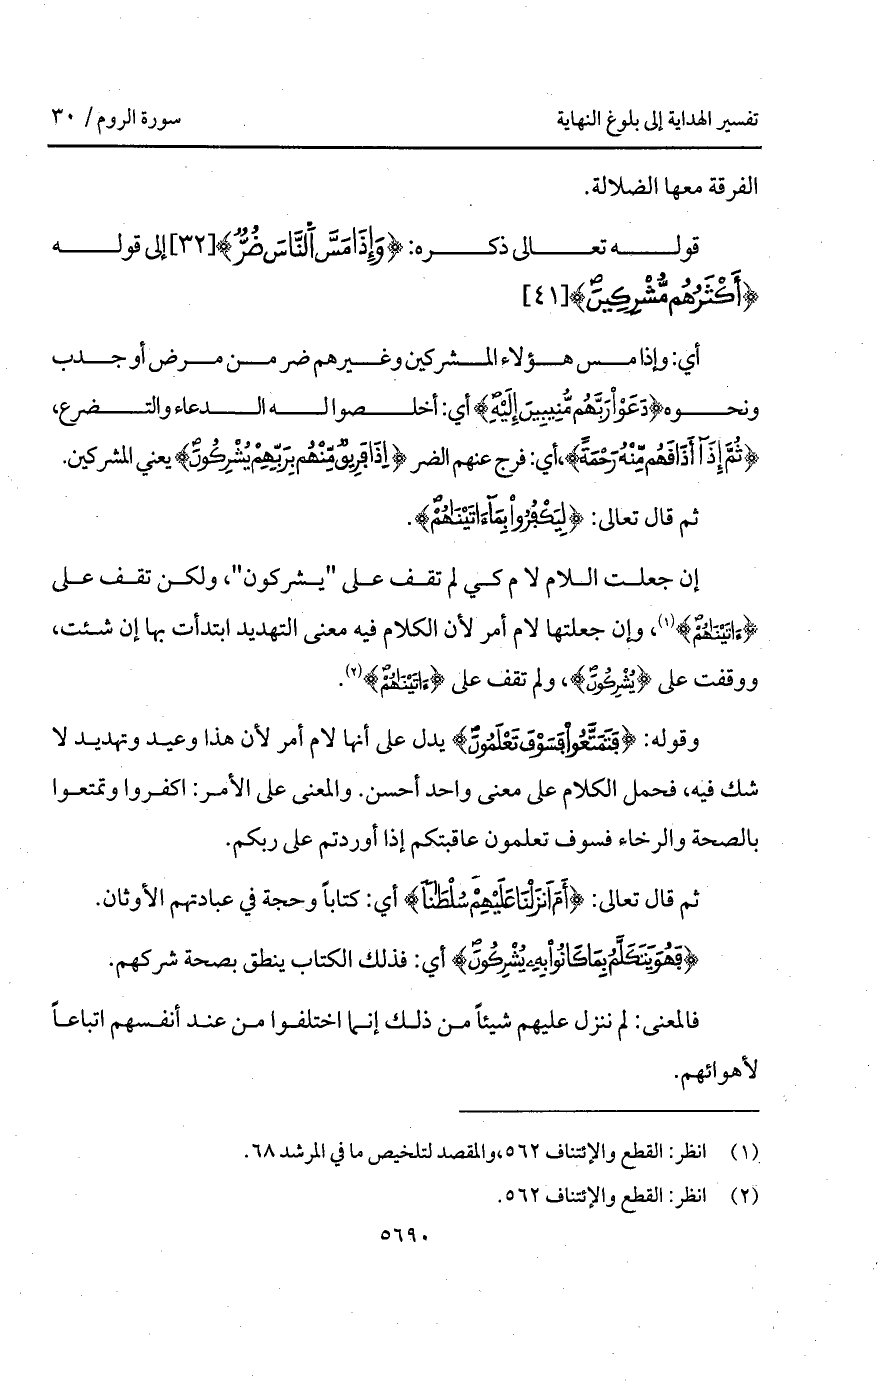 تفسير الهداية إلى بلوغ النهاية سورة الروم / ٣٠
الفرقة معها الضلالة.
قوله تعالى ذكره: ﴿وَإِذَا مَسَّ اَلنَّاسَ ضُرٌّ﴾ [٣٢] إلى قوله
﴿أَكْثَرُهُم مُّشْرِكِينَ﴾ [٤١]
أي: وإذا مس هؤلاء المشركين وغيرهم ضر من مرض أو جدب
ونحوه ﴿دَعَوْاْ رَبَّهُم مُّنِيبِينَ إِلَيْهِ﴾ أي: أخلصوا له الدعاء والتضرع،
﴿ثُمَّ إِذَآ أَذَاقَهُم مِّنْهُ رَحْمَةً﴾، أي: فرج عنهم الضر ﴿إِذَا فَرِيقٌ مِّنْهُم بِرَبِّهِمْ يُشْرِكُونَ﴾ يعني المشركين.
ثم قال تعالى: ﴿لِيَكْفُرُواْ بِمَآ ءَاتَيْنَاهُمْ﴾.
إن جعلت اللام لام كي لم تقف على "يشركون"، ولكن تقف على
﴿ءَاتَيْنَاهُمْ﴾(١)، وإن جعلتها لام أمر لأن الكلام فيه معنى التهديد ابتدأت بها إن شئت،
ووقفت على ﴿يُشْرِكُونَ﴾، ولم تقف على ﴿ءَاتَيْنَاهُمْ﴾(٢).
وقوله: ﴿فَتَمَتَّعُواْ فَسَوْفَ تَعْلَمُونَ﴾ يدل على أنها لام أمر لأن هذا وعيد وتهديد لا
شك فيه، فحمل الكلام على معنى واحد أحسن. والمعنى على الأمر: اكفروا وتمتعوا
بالصحة والرخاء فسوف تعلمون عاقبتكم إذا أوردتم على ربكم.
ثم قال تعالى: ﴿أَمَ اَنزَلْنَا عَلَيْهِمْ سُلْطَٰناً﴾ أي: كتاباً وحجة في عبادتهم الأوثان.
﴿فَهُوَ يَتَكَلَّمُ بِمَا كَانُواْ بِهِۦ يُشْرِكُونَ﴾ أي: فذلك الكتاب ينطق بصحة شركهم.
فالمعنى: لم ننزل عليهم شيئاً من ذلك إنما اختلفوا من عند أنفسهم اتباعاً
لأهوائهم.
(١) انظر: القطع والإئتناف ٥٦٢، والمقصد لتلخيص ما في المرشد ٦٨.
(٢) انظر: القطع والإئتناف ٥٦٢.
٥٦٩٠